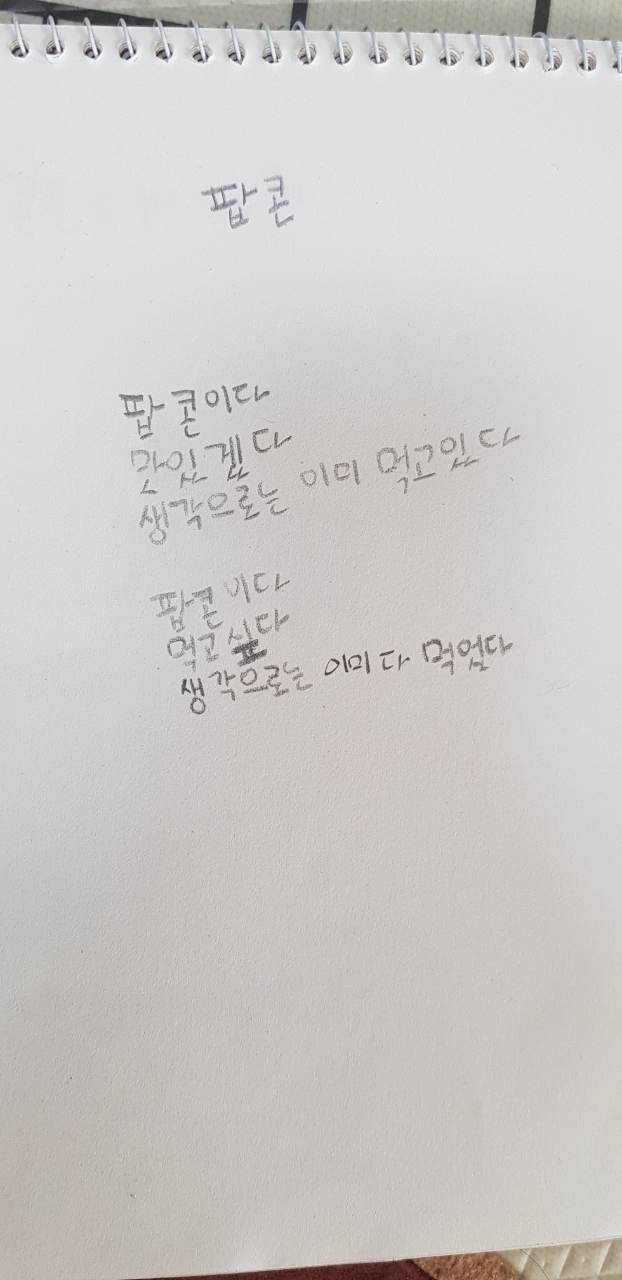 팝콘
팝콘이다
맛있겠다
생각으로는 이미 먹고있다
팝콘이다
먹고싶다
생각으로는 이미 다 먹었다